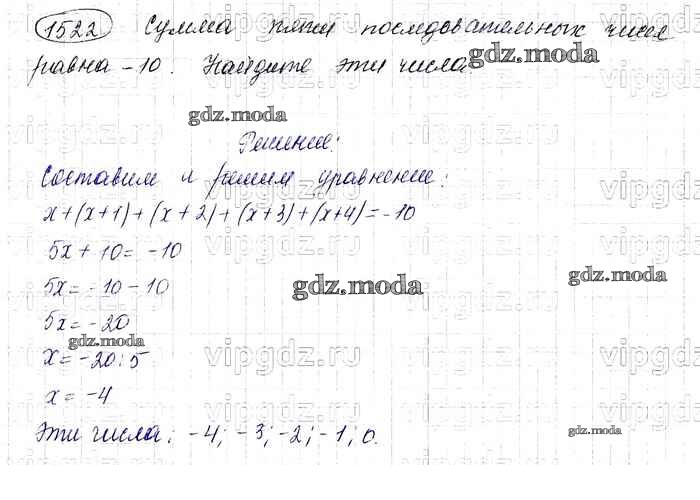 1522 Сумма пяти последовательных чисел
равна -10. Найдите эти числа
gdz.moda
gdz.moda
Решение:
Составим и решим уравнение:
vipgdz.ru
x+(x+1)+(x+2)+(x+3)+(x+4)=-10
5x+10=-10
gdz.moda
5x=-10-10
gdz.moda
5x=-20
gdz.moda
x=-20:5
vipgdz.ru
x=-4
gdz.moda
Эти числа: -4; -3; -2; -1; 0.